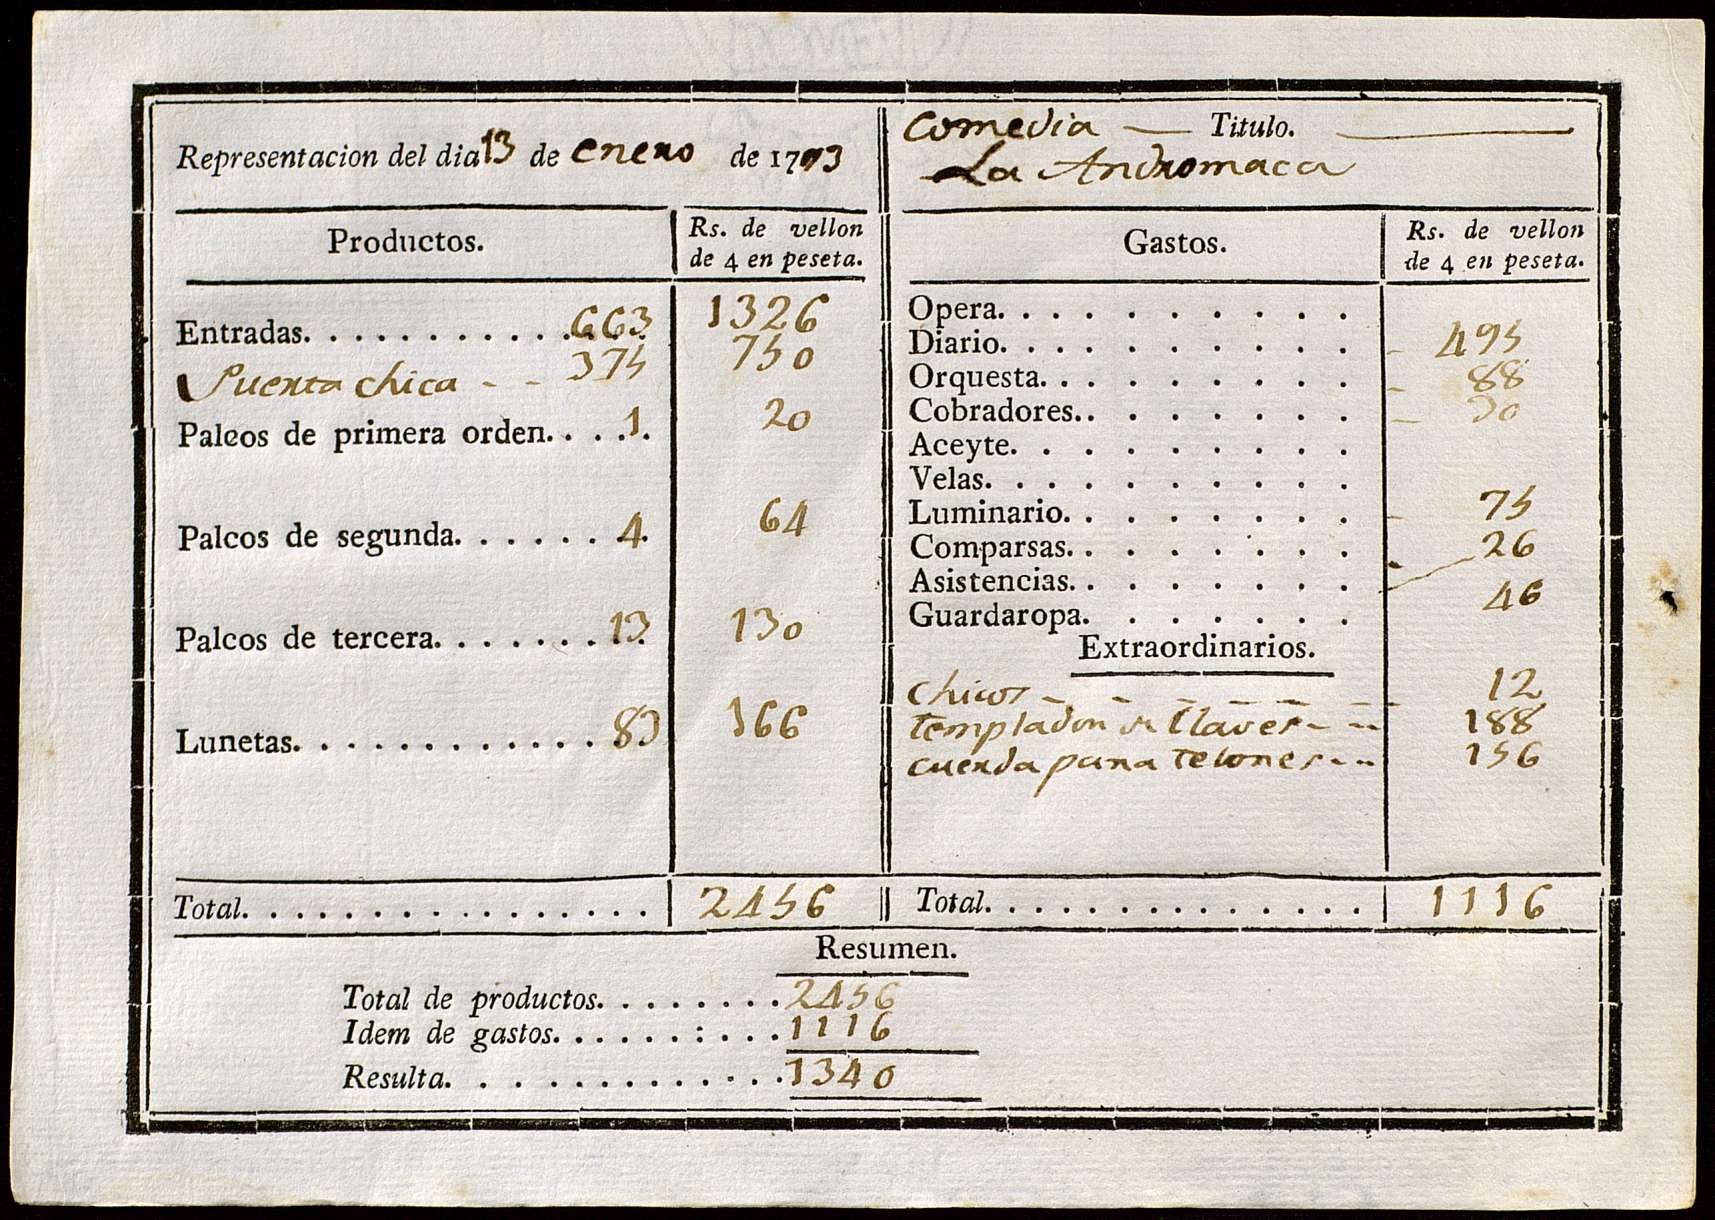 Representacion del dia 13 de enero de 1793
Productos.
Rs. de vellon
de 4 en peseta.
Entradas. 663 1326
Puerta chica - - 375 750
Palcos de primera orden. 1 20
Palcos de segunda. 4 64
Palcos de tercera. 13 130
Lunetas. 83 166
Total. 2456
Comedia — Titulo. —
La Andromaca
Gastos.
Rs. de vellon
de 4 en peseta.
Opera.
Diario. 495
Orquesta. 88
Cobradores. 30
Aceyte.
Velas.
Luminario. 75
Comparsas. 26
Asistencias.
Guardaropa. 46
Extraordinarios.
chicos 12
templador de Claves 188
cuerda para telones 156
Total. 1116
Resumen.
Total de productos. 2456
Idem de gastos. 1116
Resulta. 1340